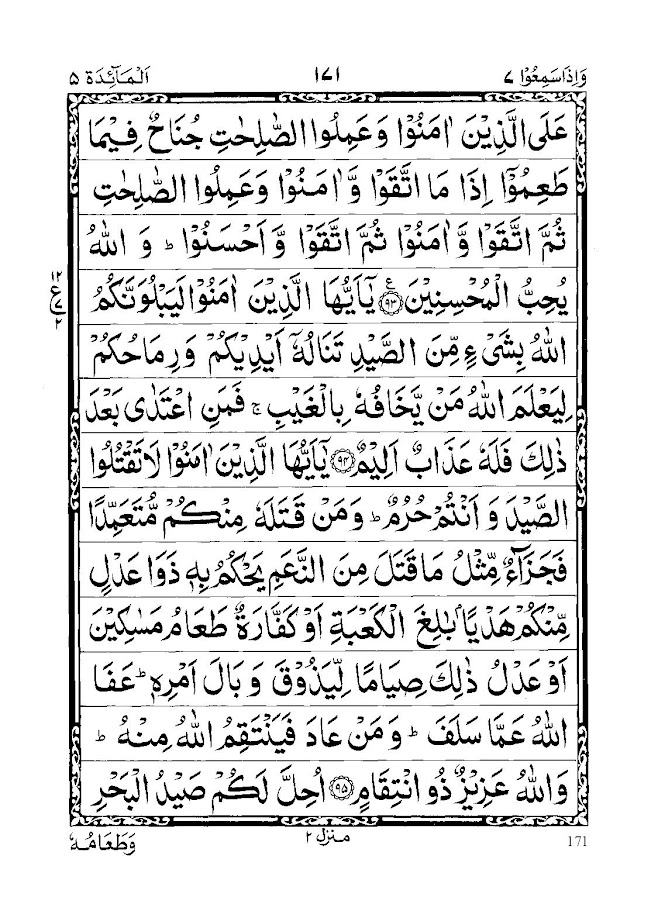 وَاِذَا سَمِعُوْا ٧ ١٧١ اَلْمَآئِدَة ٥
عَلَى الَّذِيْنَ اٰمَنُوْا وَعَمِلُوا الصّٰلِحٰتِ جُنَاحٌ فِيْمَا
طَعِمُوْٓا اِذَا مَا اتَّقَوْا وَّاٰمَنُوْا وَعَمِلُوا الصّٰلِحٰتِ
ثُمَّ اتَّقَوْا وَّاٰمَنُوْا ثُمَّ اتَّقَوْا وَّاَحْسَنُوْا ؕ وَ اللّٰهُ
يُحِبُّ الْمُحْسِنِيْنَ ﴿٩٣﴾ ع يٰۤاَيُّهَا الَّذِيْنَ اٰمَنُوْا لَيَبْلُوَنَّكُمُ
١٢
ع
٧
٢
اللّٰهُ بِشَیْءٍ مِّنَ الصَّيْدِ تَنَالُهٗۤ اَيْدِيْكُمْ وَرِمَاحُكُمْ
لِيَعْلَمَ اللّٰهُ مَنْ يَّخَافُهٗ بِالْغَيْبِ ۚ فَمَنِ اعْتَدٰى بَعْدَ
ذٰلِكَ فَلَهٗ عَذَابٌ اَلِيْمٌ ﴿٩٤﴾ يٰۤاَيُّهَا الَّذِيْنَ اٰمَنُوْا لَا تَقْتُلُوا
الصَّيْدَ وَ اَنْتُمْ حُرُمٌ ؕ وَمَنْ قَتَلَهٗ مِنْكُمْ مُّتَعَمِّدًا
فَجَزَآءٌ مِّثْلُ مَا قَتَلَ مِنَ النَّعَمِ يَحْكُمُ بِهٖ ذَوَا عَدْلٍ
مِّنْكُمْ هَدْيًاۢ بٰلِغَ الْكَعْبَةِ اَوْ كَفَّارَةٌ طَعَامُ مَسٰكِيْنَ
اَوْ عَدْلُ ذٰلِكَ صِيَامًا لِّيَذُوْقَ وَ بَالَ اَمْرِهٖ ؕ عَفَا
اللّٰهُ عَمَّا سَلَفَ ؕ وَمَنْ عَادَ فَيَنْتَقِمُ اللّٰهُ مِنْهُ ؕ
وَاللّٰهُ عَزِيْزٌ ذُو انْتِقَامٍ ﴿٩٥﴾ اُحِلَّ لَكُمْ صَيْدُ الْبَحْرِ
171 منزل ٢ وَطَعَامُهٗ